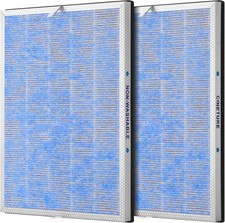 NON-WASHABLE
CINETURE